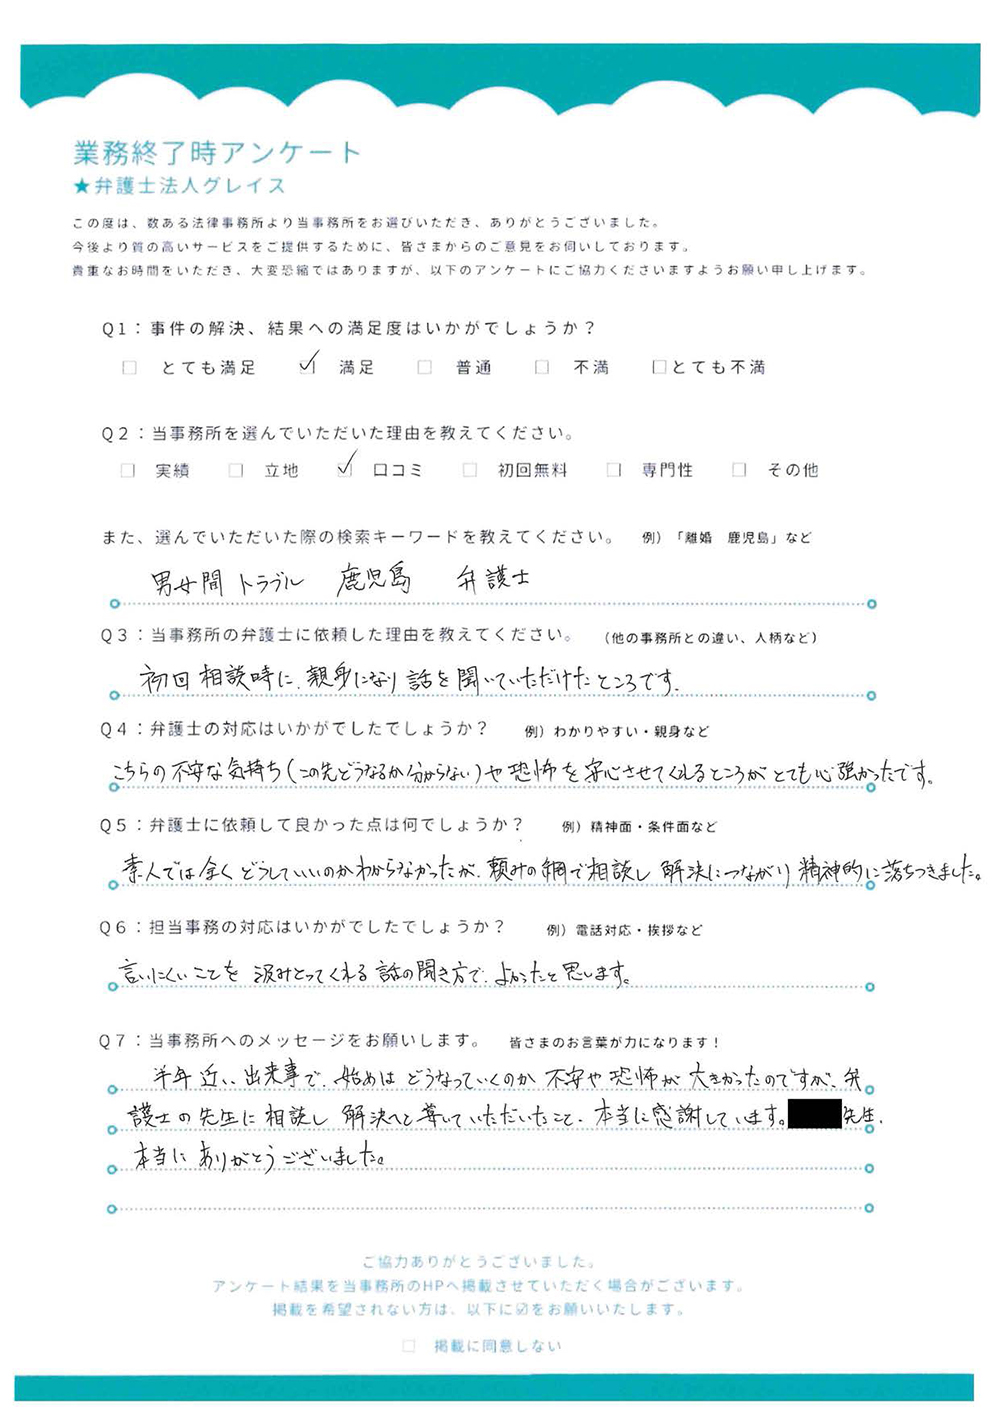 業務終了時アンケート
★弁護士法人グレイス
この度は、数ある法律事務所より当事務所をお選びいただき、ありがとうございました。
今後より質の高いサービスをご提供するために、皆さまからのご意見をお伺いしております。
貴重なお時間をいただき、大変恐縮ではありますが、以下のアンケートにご協力くださいますようお願い申し上げます。
Q1：事件の解決、結果への満足度はいかがでしょうか？
□ とても満足 ☑ 満足 □ 普通 □ 不満 □とても不満
Q2：当事務所を選んでいただいた理由を教えてください。
□ 実績 □ 立地 ☑ 口コミ □ 初回無料 □ 専門性 □ その他
また、選んでいただいた際の検索キーワードを教えてください。 例）「離婚 鹿児島」など
男女間トラブル 鹿児島 弁護士
Q3：当事務所の弁護士に依頼した理由を教えてください。 （他の事務所との違い、人柄など）
初回相談時に、親身になり話を聞いていただけたところです。
Q4：弁護士の対応はいかがでしたでしょうか？ 例）わかりやすい・親身など
こちらの不安な気持ち（この先どうなるか分からない）や恐怖を安心させてくれるところがとても心強かったです。
Q5：弁護士に依頼して良かった点は何でしょうか？ 例）精神面・条件面など
素人では全くどうしていいのかわからなかったが、頼みの綱で相談し解決につながり精神的に落ちつきました。
Q6：担当事務の対応はいかがでしたでしょうか？ 例）電話対応・挨拶など
言いにくいことを汲みとってくれる話の聞き方で、よかったと思います。
Q7：当事務所へのメッセージをお願いします。 皆さまのお言葉が力になります！
半年近い出来事で、始めはどうなっていくのか不安や恐怖が大きかったのですが、弁
護士の先生に相談し解決へと導いていただいたこと、本当に感謝しています。先生、
本当にありがとうございました。
ご協力ありがとうございました。
アンケート結果を当事務所のHPへ掲載させていただく場合がございます。
掲載を希望されない方は、以下に☑をお願いいたします。
□ 掲載に同意しない